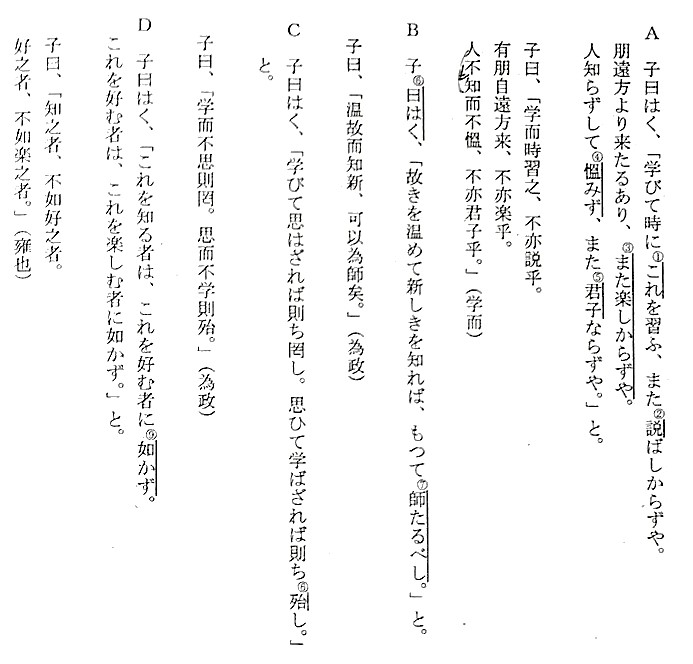 A 子曰はく、「学びて時に①これを習ふ、また②説ばしからずや。
朋遠方より来たるあり、③また楽しからずや。
人知らずして④慍みず、また⑤君子ならずや。」と。
子曰、「学而時習之、不亦説乎。
有朋自遠方来、不亦楽乎。
人不知而不慍、不亦君子乎。」（学而）
B 子⑥曰はく、「故きを温めて新しきを知れば、もつて⑦師たるべし。」と。
子曰、「温故而知新、可以為師矣。」（為政）
C 子曰はく、「学びて思はざれば則ち罔し。思ひて学ばざれば則ち⑧殆し。」
と。
子曰、「学而不思則罔。思而不学則殆。」（為政）
D 子曰はく、「これを知る者は、これを好む者に⑨如かず。
これを好む者は、これを楽しむ者に如かず。」と。
子曰、「知之者、不如好之者。
好之者、不如楽之者。」（雍也）